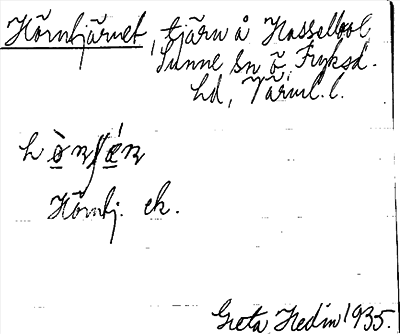 Hörntjärnet, tjärn å Hasselbol
Sunne sn ö, Fryksd.
hd, Värml. l.
Hörntj. ek.
Greta Hedin 1935.